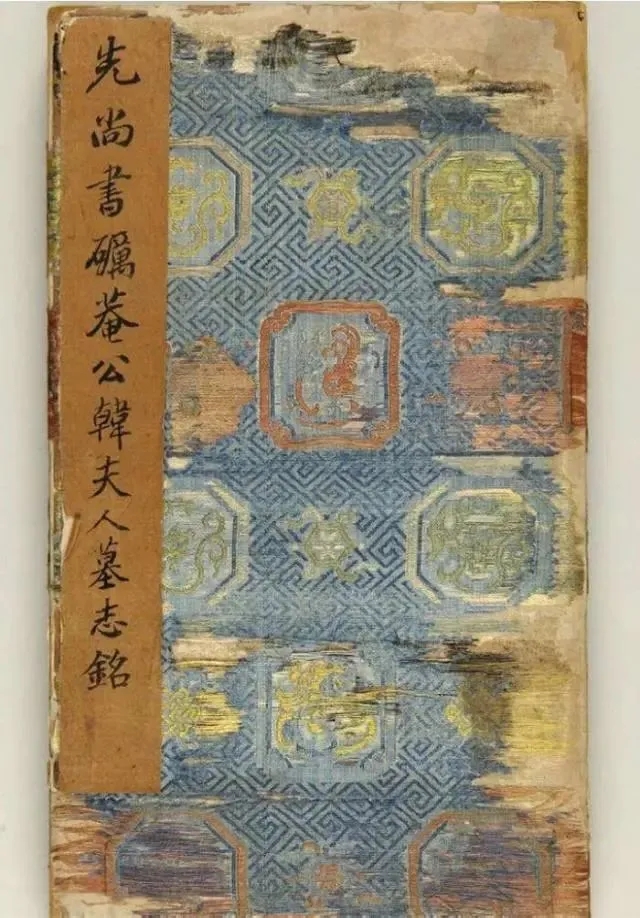 先尚書礪菴公韓夫人墓志銘